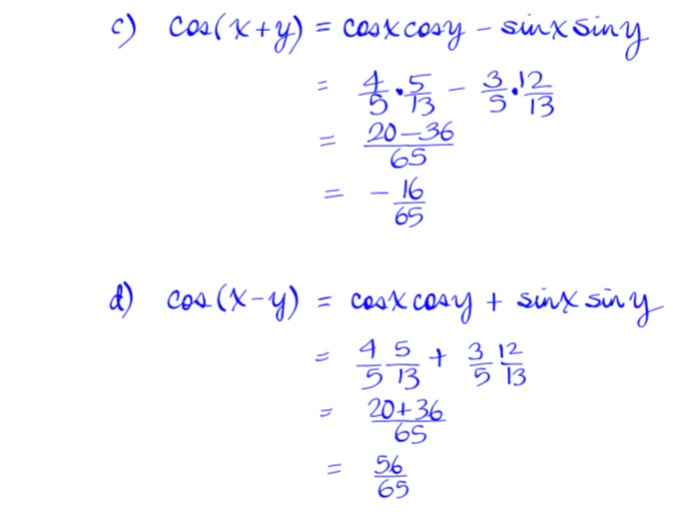 c) cos(x+y) = cosxcosy - sinxsiny
= 4/5 · 5/13 - 3/5 · 12/13
= 20-36/65
= - 16/65
d) cos(x-y) = cosxcosy + sinxsiny
= 4/5 5/13 + 3/5 12/13
= 20+36/65
= 56/65